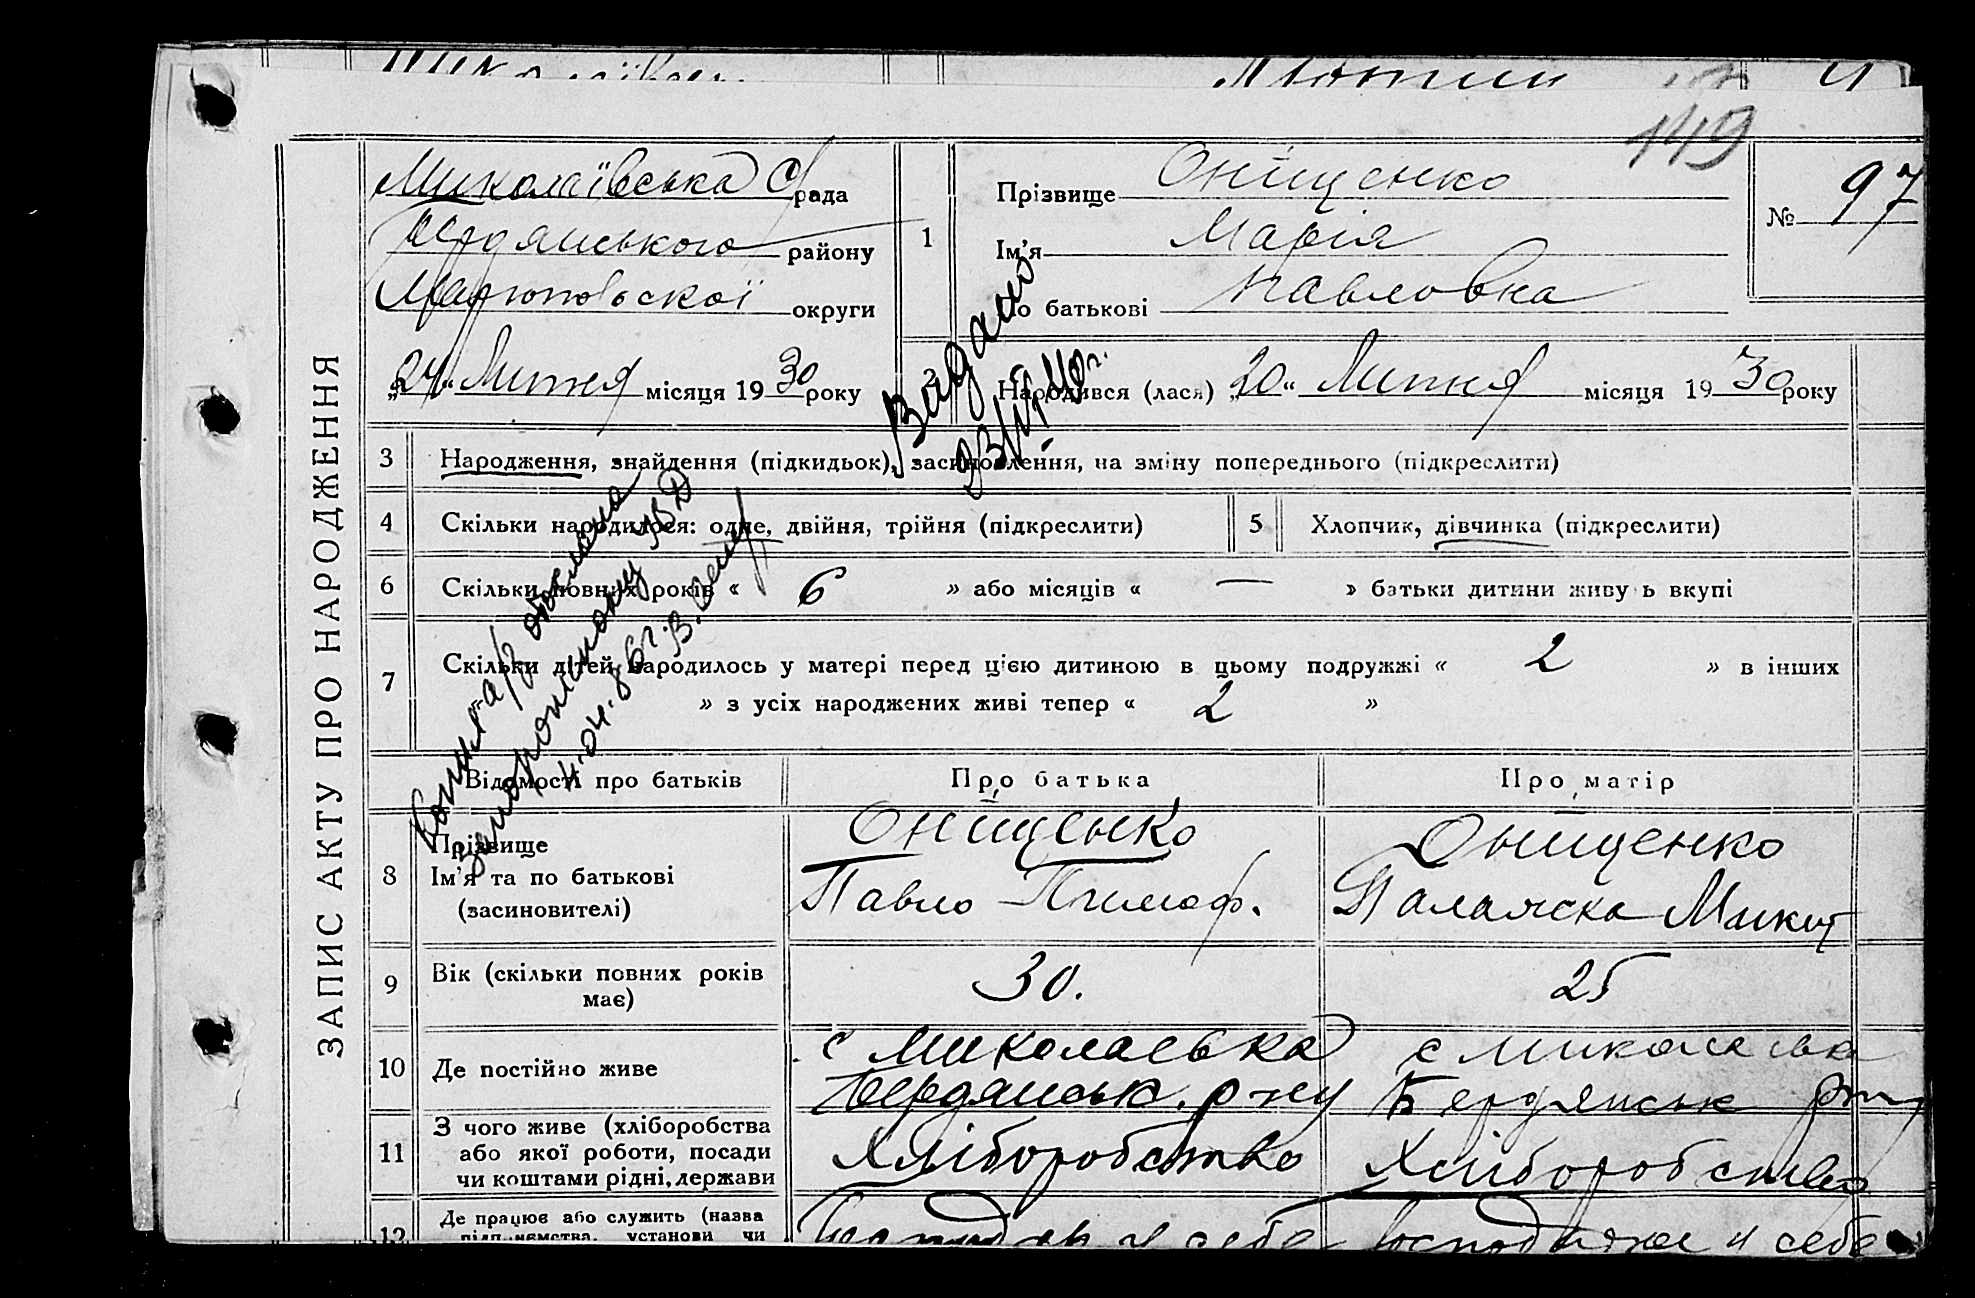 149
Миколаївська С/рада
Бердянського району
Маріюпольскої округи
„24" Лютня місяця 1930 року
1
Прізвище Онїщенко
Ім'я Марія
По батькові Павловна
№ 97
2
Народився (лася) „20" Лютня місяця 1930 року
Видано
23/IV 40 г.
ЗАПИС АКТУ ПРО НАРОДЖЕННЯ
3 Народження, знайдення (підкидьок), засиновлення, на зміну попереднього (підкреслити)
4 Скільки народилося: одне, двійня, трійня (підкреслити)
5 Хлопчик, дівчинка (підкреслити)
6 Скільки повних років « 6 » або місяців « — » батьки дитини живуть вкупі
7 Скільки дітей народилось у матері перед цією дитиною в цьому подружжі « 2 » в інших
» з усіх народжених живі тепер « 2 »
Копия а/з отослана
Запорожскому
4.04.86г. В.
Відомості про батьків
Про батька
Про матір
8 Прізвище
Ім'я та по батькові
(засиновителі)
Онїщенко
Павло Тимоф.
Онїщенко
Палажка Микит
9 Вік (скільки повних років має)
30.
25
10 Де постійно живе
с Миколаевка
Бердянськ. р-ну
с Миколаевка
Бердянськ р-ну
11 З чого живе (хліборобства
або якої роботи, посади
чи коштами рідні, держави
Хліборобство
Хліборобство
12 Де працює або служить (назва
підприємства, установи чи
Господар у себе
Господарка у себе